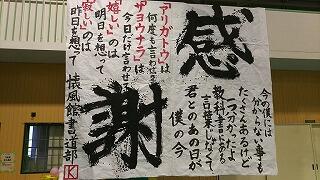 感謝
「アリガトウ」は
何度も言わせて
「サヨウナラ」は
今日だけ言わせて
「嬉しい」のは
明日を想って
「寂しい」のは
昨日を想って
今の僕には
分からない事も
たくさんあるけど
一つ分かったよ
教科書にある
言葉じゃなく
君とのあの日が
僕の今
懐風館書道部
K